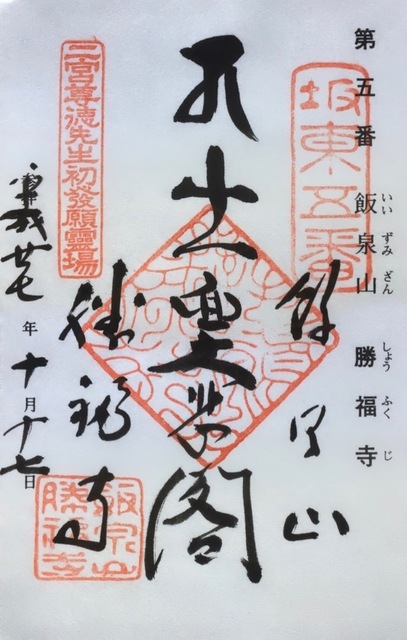 第五番 飯泉山 勝福寺
いい ずみ ざん しょう ふく じ
坂東五番
飯泉山
閣
勝福寺
飯泉山
勝福寺
二宮尊徳先生初發願靈場
平成廿七年十月十七日